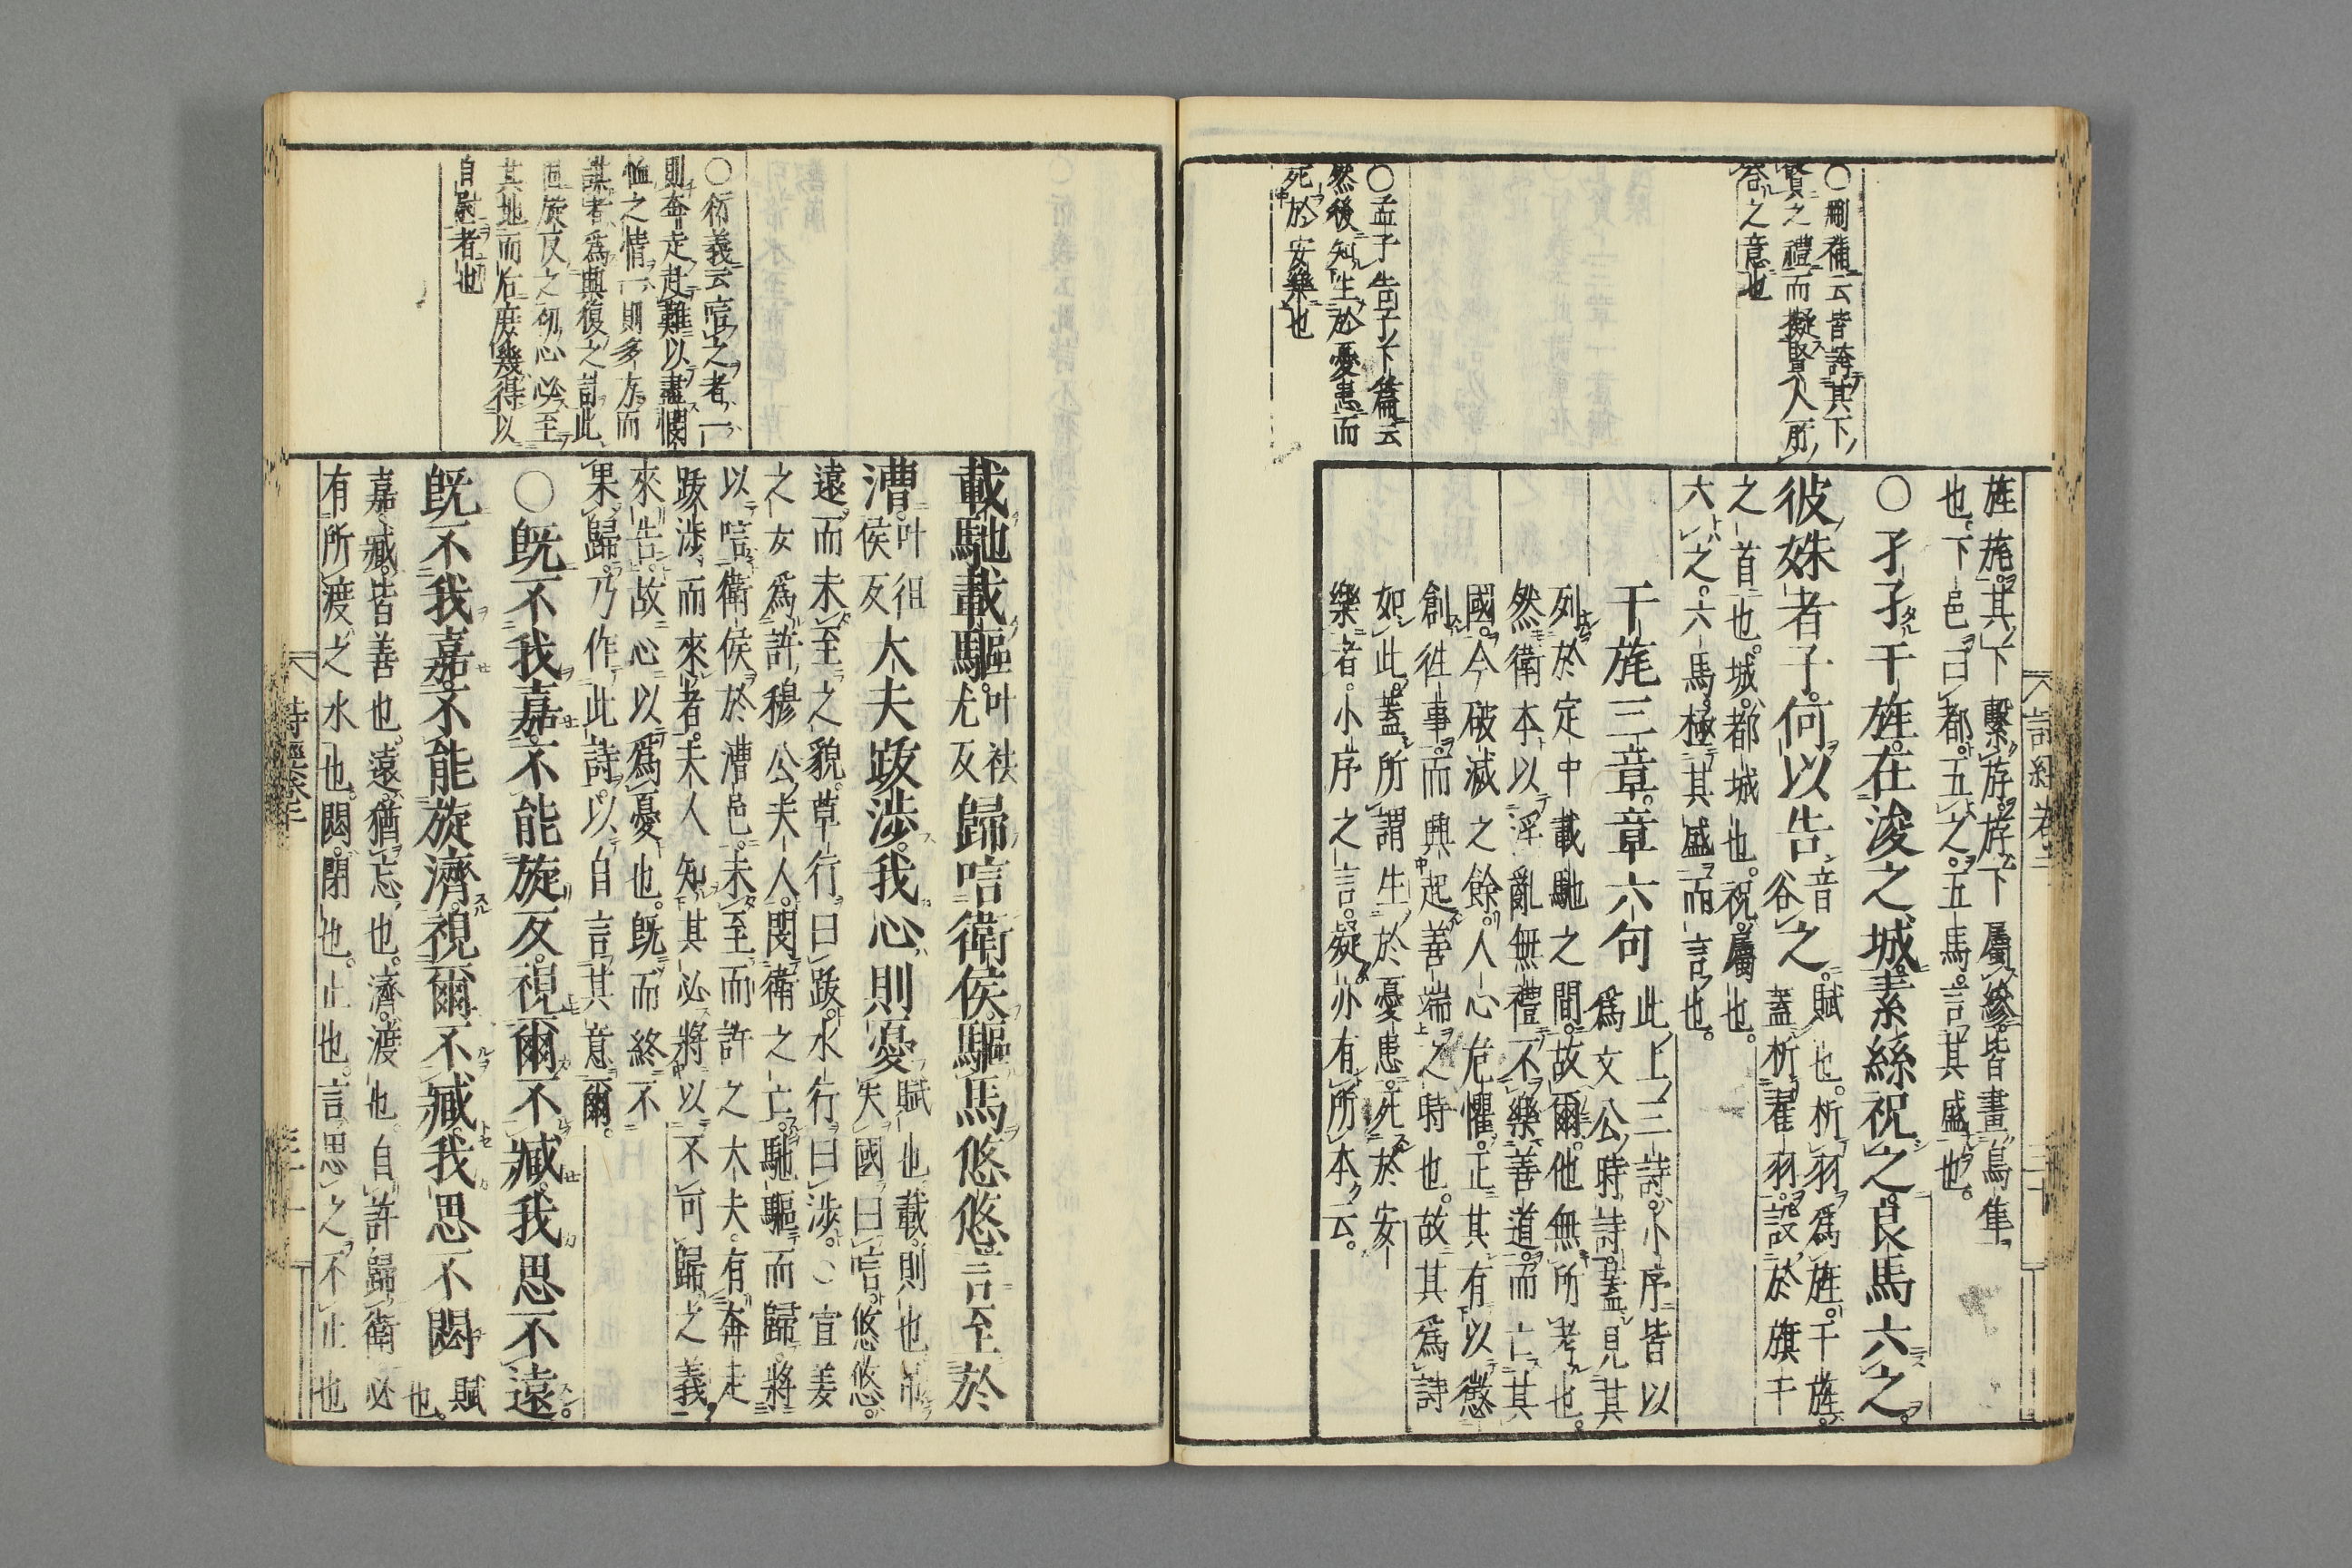 ○刪補云皆誇其下
賢之禮而擬賢人所
答之意也
○孟子告子下篇云
然後知生於憂患而
死於安樂也
旄旄其下繫旂旂下屬縿皆畫鳥隼
也下邑曰都五之五馬言其盛也
○孑孑干旌在浚之城素絲祝之良馬六之
彼姝者子何以告音谷之賦也析羽爲旌干旌
蓋析翟羽設於旗干
之首也城都城也祝屬也
六之六馬極其盛而言也
干旄三章章六句此上三詩小序皆以
爲文公時詩蓋見其
列於定中載馳之間故爾他無所考也
然衛本以淫亂無禮不樂善道而亡其
國今破滅之餘人心危懼正其有以懲
創往事而興起善端之時也故其爲詩
如此蓋所謂生於憂患死於安
樂者小序之言疑亦有所本云
詩經卷二
三十
○衍義云唁之者一
則奔走赴難以盡憫
恤之情一則多方而
謀者爲興復之計此
思旋反之初心必至
其地而后庶幾得以
自慰者也
載馳載驅叶祛尤反歸唁衛侯驅馬悠悠言至於
漕叶徂侯反大夫跋涉我心則憂賦也載則也弔
失國曰唁悠悠
遠而未至之貌草行曰跋水行曰涉○宣姜
之女爲許穆公夫人閔衛之亡馳驅而歸將
以唁衛侯於漕邑未至而許之大夫有奔走
跋涉而來者夫人知其必將以不可歸之義
來告故心以爲憂也旣而終不
果歸乃作此詩以自言其意爾
○旣不我嘉不能旋反視爾不臧我思不遠
旣不我嘉不能旋濟視爾不臧我思不閟賦
也
嘉臧皆善也遠猶忘也濟渡也自許歸衛必
有所渡之水也閟閉也止也言思之不止也
詩經卷二
三十一